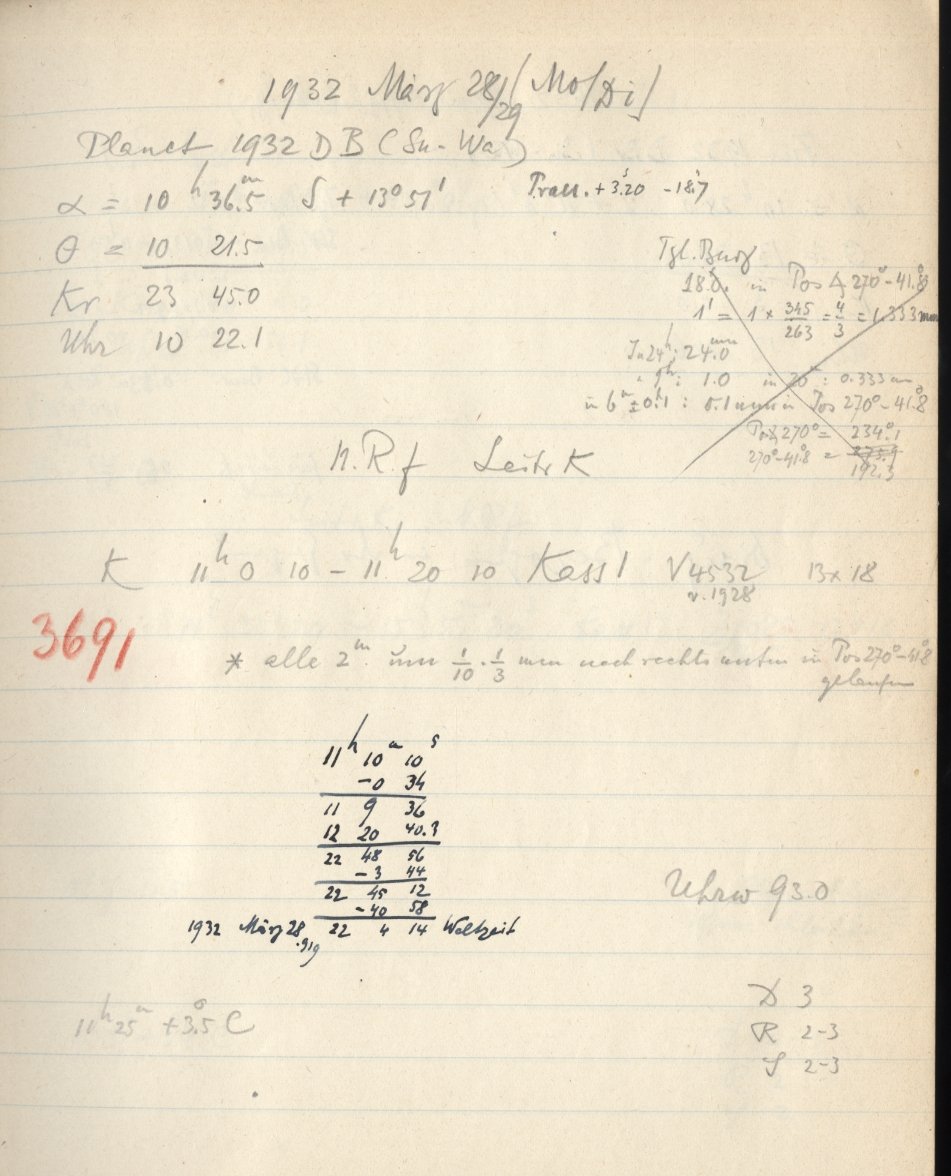 1932 März 28/29 (Mo/Di)
Planet 1932 DB (Su-Wa)
α = 10h 36.5m δ + 13° 51'
Präz. + 3.20s - 18.7'
θ = 10 21.5
Kr 23 45.0
Uhr 10 22.1
Tgl. Bewg
18.0. in Pos ∡ 270° - 41.8°
1' = 1 × 345/263 = 4/3 = 1.333 mm
In 24h: 24.0 mm
" 9h: 1.0 in 20m: 0.333 mm
in 6m ± 0.1: 0.1 mm in Pos 270° - 41.8
Pos∡ 270° = 234.1°
270° - 41.8° = 192.3
N.R.f Leitr K
K 11h 0 10 - 11h 20 10 Kass 1 V4532 13 × 18
v. 1928
3691
* alle 2m um 1/10 · 1/3 mm nach rechts unten in Pos 270° - 41.8
gelaufen
11h 10m 10s
-0 34
11 9 36
12 20 40.3
22 48 56
-3 44
22 45 12
-40 58
1932 März 28.919 22 4 14 Weltzeit
Uhrw 93.0
11h 25m + 3.5° C
D 3
R 2-3
S 2-3